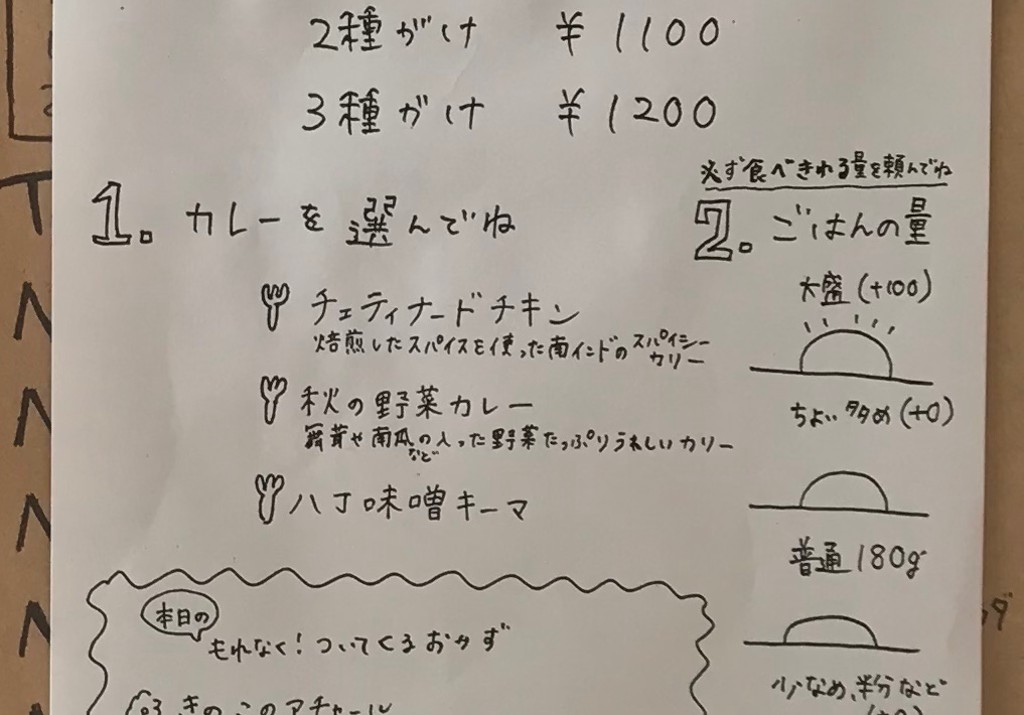 2種がけ ¥1100
3種がけ ¥1200
1. カレーを選んでね
チェティナードチキン
焙煎したスパイスを使った南インドのスパイシーカリー
秋の野菜カレー
舞茸や南瓜などの入った野菜たっぷりうれしいカリー
八丁味噌キーマ
必ず食べきれる量を頼んでね
2. ごはんの量
大盛(+100)
ちょい多め(+0)
普通180g
少なめ、半分など
本日の
もれなく!ついてくるおかず
きのこのアチャール